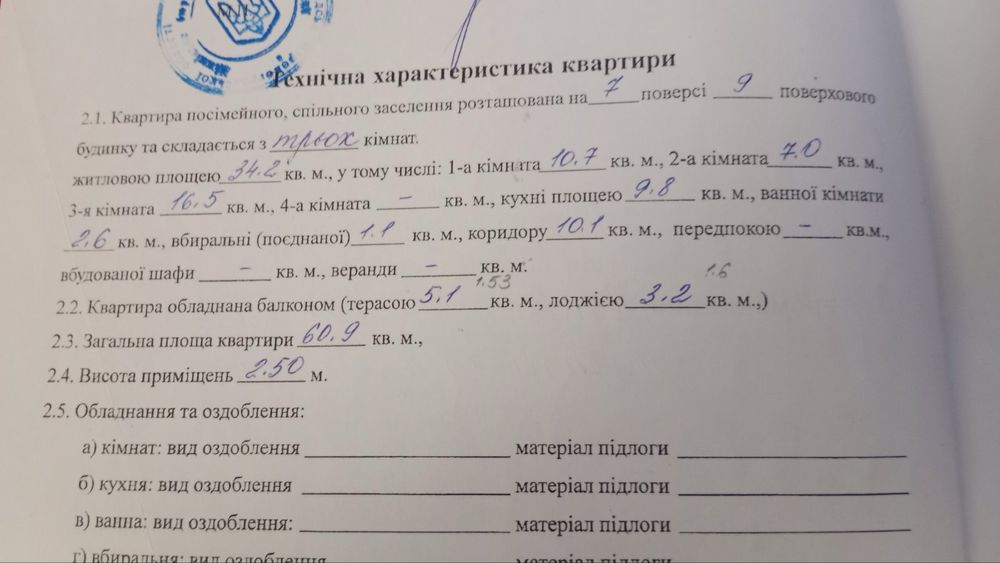 Технічна характеристика квартири
2.1. Квартира посімейного, спільного заселення розташована на 7 поверсі 9 поверхового
будинку та складається з трьох кімнат.
житловою площею 34.2 кв. м., у тому числі: 1-а кімната 10.7 кв. м., 2-а кімната 7.0 кв. м.,
3-я кімната 16.5 кв. м., 4-а кімната – кв. м., кухні площею 9.8 кв. м., ванної кімнати
2.6 кв. м., вбиральні (поєднаної) 1.1 кв. м., коридору 10.1 кв. м., передпокою – кв.м.,
вбудованої шафи – кв. м., веранди – кв. м.
1.53 1.6
2.2. Квартира обладнана балконом (терасою 5.1 кв. м., лоджією 3.2 кв. м.,)
2.3. Загальна площа квартири 60.9 кв. м.,
2.4. Висота приміщень 2.50 м.
2.5. Обладнання та оздоблення:
а) кімнат: вид оздоблення ____ матеріал підлоги ____
б) кухня: вид оздоблення ____ матеріал підлоги ____
в) ванна: вид оздоблення: ____ матеріал підлоги ____
г) вбиральня: вид оздоблення ____ матеріал підлоги